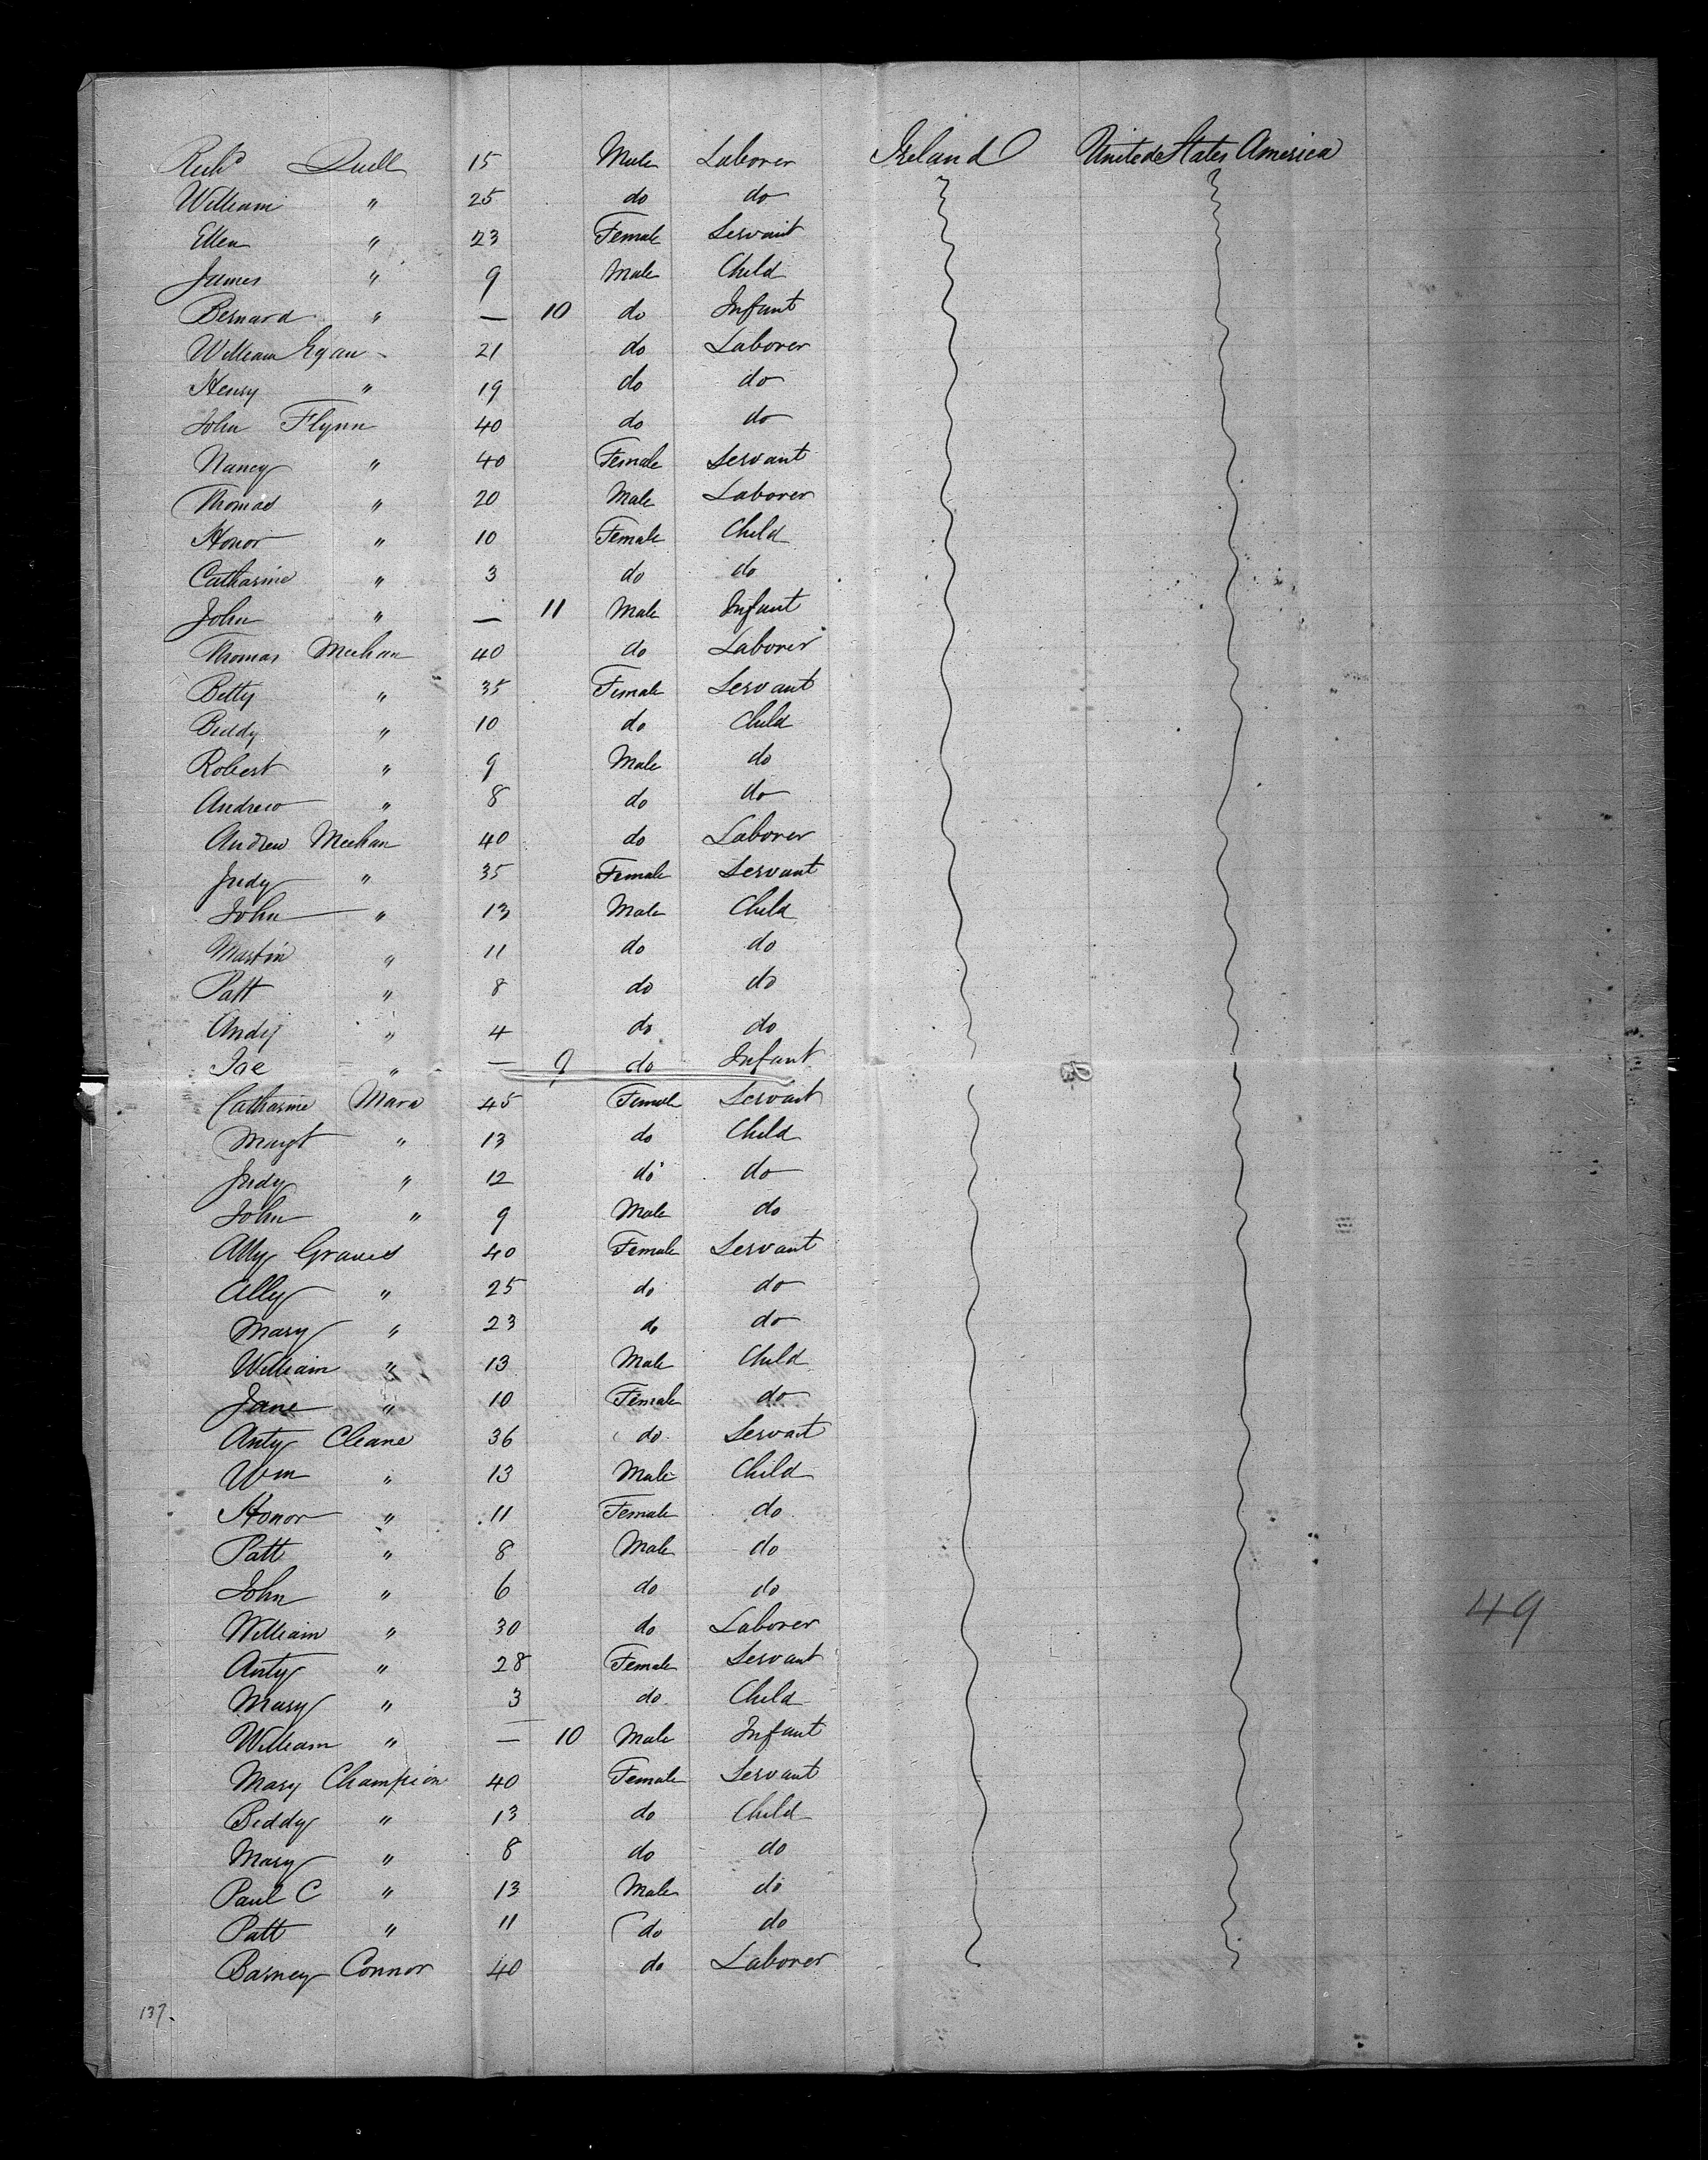 Richd Quill 15 Male Laborer Ireland United States America
William " 25 do do
Ellen " 23 Female Servant
James " 9 Male Child
Bernard " — 10 do Infant
William Egan 21 do Laborer
Henry " 19 do do
John Flynn 40 do do
Nancy " 40 Female Servant
Thomas " 20 Male Laborer
Honor " 10 Female Child
Catharine " 3 do do
John " — 11 Male Infant
Thomas Meehan 40 do Laborer
Betty " 35 Female Servant
Biddy " 10 do Child
Robert " 9 Male do
Andrew " 8 do do
Andrew Meehan 40 do Laborer
Judy " 35 Female Servant
John " 13 Male Child
Martin " 11 do do
Patt " 8 do do
Andy " 4 do do
" — 9 do Infant
Catharine Mara 45 Female Servant
Margt " 13 do Child
Judy " 12 do do
John " 9 Male do
Ally Graves 40 Female Servant
Ally " 25 do do
Mary " 23 do do
William " 13 Male Child
Jane " 10 Female do
Anty Cleane 36 do Servant
Wm " 13 Male Child
Honor " 11 Female do
Patt " 8 Male do
John " 6 do do
William " 30 do Laborer
Anty " 28 Female Servant
Mary " 3 do Child
William " — 10 Male Infant
Mary Champion 40 Female Servant
Biddy " 13 do Child
Mary " 8 do do
Paul C " 13 Male do
Patt " 11 do do
Barney Connor 40 do Laborer
49
137.